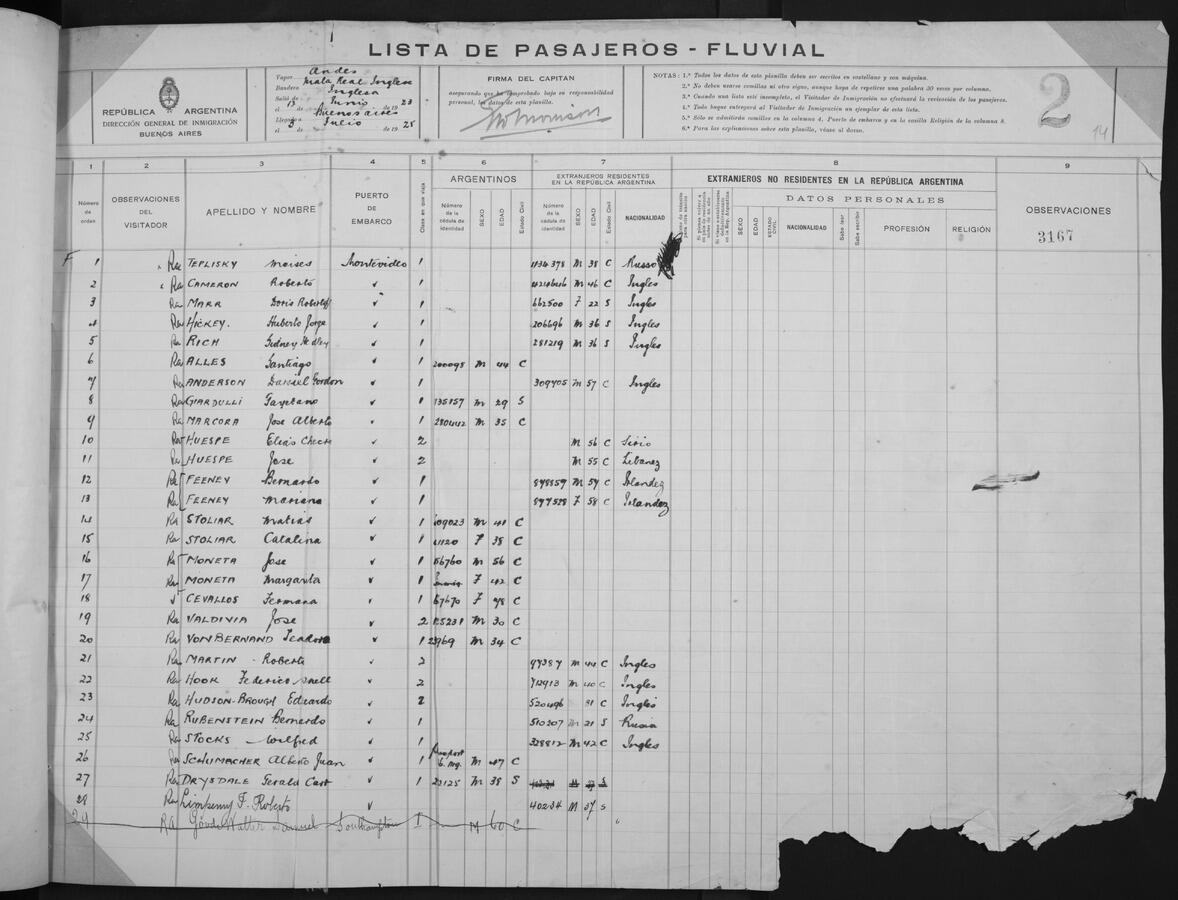 LISTA DE PASAJEROS - FLUVIAL
REPÚBLICA ARGENTINA
DIRECCIÓN GENERAL DE INMIGRACIÓN
BUENOS AIRES
Vapor Andes
Bandera Mala Real Inglesa
Inglesa
Salió de
el 13 de Junio de 19 23
Llegó a Buenos aires
el 3 de Julio de 19 25
FIRMA DEL CAPITAN
asegurando que ha comprobado bajo su responsabilidad
personal, los datos de esta planilla.
NOTAS: 1.ª Todos los datos de esta planilla deben ser escritos en castellano y con máquina.
2.ª No deben usarse comillas ni otro signo, aunque haya de repetirse una palabra 30 veces por columna.
3.ª Cuando una lista esté incompleta, el Visitador de Inmigración no efectuará la revisación de los pasajeros.
4.ª Todo buque entregará al Visitador de Inmigración un ejemplar de esta lista.
5.ª Sólo se admitirán comillas en la columna 4. Puerto de embarco y en la casilla Religión de la columna 8.
6.ª Para las explicaciones sobre esta planilla, véase al dorso.
2
14
1 2 3 4 5 6 7 8 9
Número de orden
OBSERVACIONES DEL VISITADOR
APELLIDO Y NOMBRE
PUERTO DE EMBARCO
Clase en que viaja
ARGENTINOS
Número de la cédula de identidad
SEXO
EDAD
Estado Civil
EXTRANJEROS RESIDENTES EN LA REPÚBLICA ARGENTINA
Número de la cédula de identidad
SEXO
EDAD
Estado Civil
NACIONALIDAD
EXTRANJEROS NO RESIDENTES EN LA REPÚBLICA ARGENTINA
DATOS PERSONALES
SEXO
EDAD
ESTADO CIVIL
NACIONALIDAD
Sabe leer
Sabe escribir
PROFESIÓN
RELIGIÓN
OBSERVACIONES
3167
F 1 Ra TEPLISKY Moises Montevideo 1 1134378 M 38 C Russo
2 Ra CAMERON Roberto 1 M 46 C Ingles
3 Ra MARR Doris 1 662500 F 22 S Ingles
4 Ra HICKEY. Huberto Jorge 1 206696 M 36 S Ingles
5 Ra RICH Sidney Hedley 1 281219 M 36 S Ingles
6 Ra ALLES Santiago 1 200095 M 44 C
7 Ra ANDERSON Daniel Gordon 1 309405 M 57 C Ingles
8 Ra GIARDULLI Gayetano 1 135157 M 29 S
9 Ra MARCORA Jose Alberto 1 280442 M 35 C
10 Ra HUESPE Elias 2 M 56 C Sirio
11 Ra HUESPE Jose 2 M 55 C Libanez
12 Ra FEENEY Bernardo 1 878859 M 59 C Irlandez
13 Ra FEENEY Mariana 1 877528 F 58 C Irlandez
14 Ra STOLIAR Matias 1 609023 M 41 C
15 Ra STOLIAR Catalina 1 41120 F 38 C
16 Ra MONETA Jose 1 56760 M 56 C
17 Ra MONETA Margarita 1 F 42 C
18 CEVALLOS Germana 1 67670 F 48 C
19 Ra VALDIVIA Jose 2 125231 M 30 C
20 Ra VON BERNAND Teodoro 1 23969 M 34 C
21 Ra MARTIN Roberto 2 97387 M 44 C Ingles
22 Ra HOOK Federico Snell 2 712913 M 40 C Ingles
23 Ra HUDSON-BROUGH Eduardo 2 520496 31 C Ingles
24 Ra RUBENSTEIN Bernardo 1 510207 M 21 S Rusia
25 Ra STOCKS Wilfred 1 328812 M 42 C Ingles
26 Ra SCHUMACHER Alberto Juan 1 M 47 C
27 Ra DRYSDALE Gerald 1 23125 M 38 S
28 Ra Limpenny F. Roberto 40234 M 37 S
29 RA Walter Samuel Southampton I M 60 C "